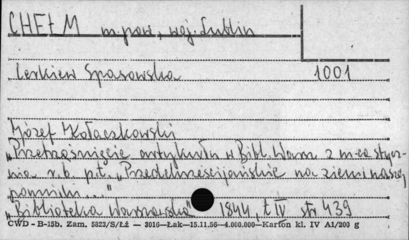 CHEŁM m. pow., woj. Lublin
Cerkiew Spasowska 1001
Józef Kołaczkowski
„Przetrząśnięcie artykułu w Bibl. Warsz. z m-ca stycz-
nia r.b. p.t. „Przedchrześcijańskie na ziemi naszej
pomniki..."
„Biblioteka Warszawska" 1844, t IV str 439
CWD - B-15b. Zam. 5823/S/Łż — 3016—Łak—15.11.56—4.000.000—Karton kl. IV A1/200 g